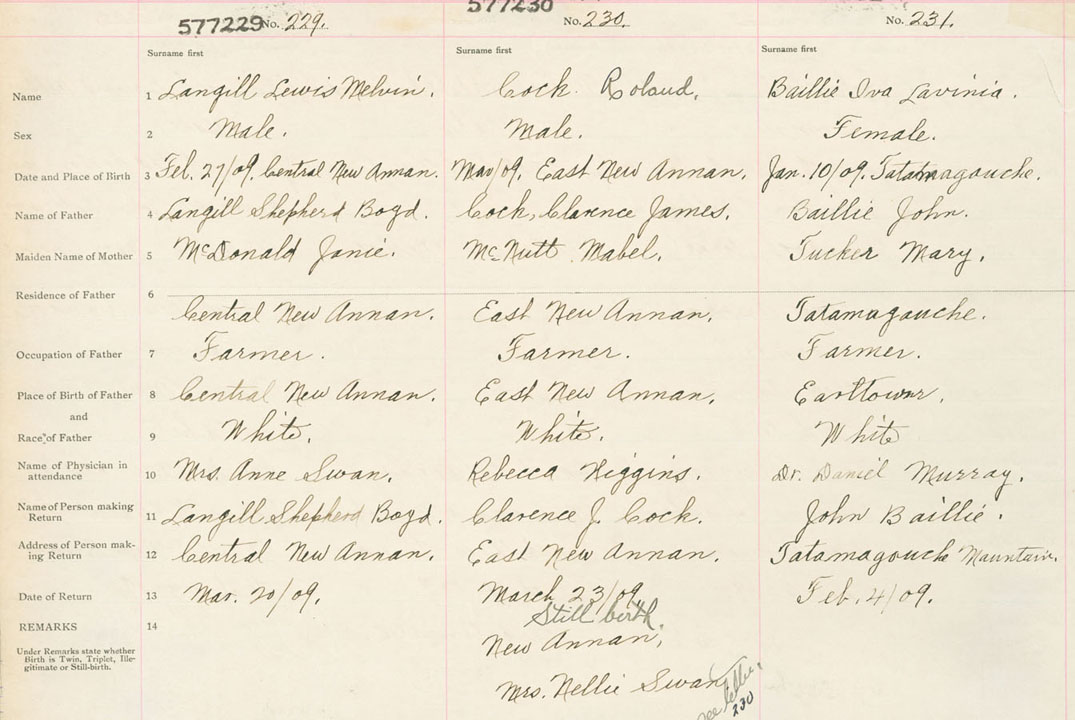 577229 No. 229. 577230 No. 230. No. 231.
Surname first Surname first Surname first
Name 1 Langill Lewis Melvin. Cock. Roland. Baillie Iva Lavinia.
Sex 2 Male. Male. Female.
Date and Place of Birth 3 Feb. 27/09. Central New Annan. Mar/09. East New Annan. Jan. 10/09. Tatamagouche.
Name of Father 4 Langill Shepherd Boyd. Cock, Clarence James. Baillie John.
Maiden Name of Mother 5 McDonald Janie. McNutt Mabel. Tucker Mary.
Residence of Father 6
Central New Annan. East New Annan. Tatamagouche.
Occupation of Father 7 Farmer. Farmer. Farmer.
Place of Birth of Father 8 Central New Annan. East New Annan. Earltown.
and
Race of Father 9 White. White. White
Name of Physician in
attendance 10 Mrs. Anne Swan. Rebecca Higgins. Dr. Daniel Murray.
Name of Person making
Return 11 Langill Shepherd Boyd. Clarence J. Cock. John Baillie.
Address of Person mak-
ing Return 12 Central New Annan. East New Annan. Tatamagouche Mountain.
Date of Return 13 Mar. 20/09. March 23/09 Feb. 4/09.
Still birth.
REMARKS 14
New Annan,
Under Remarks state whether
Birth is Twin, Triplet, Ille-
gitimate or Still-birth.
Mrs. Nellie Swan
see letter
230